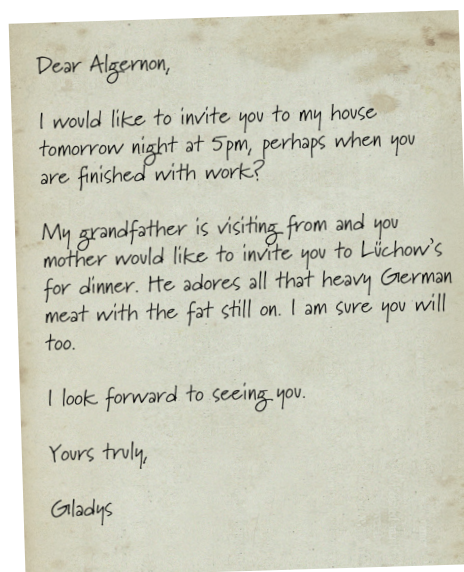 Dear Algernon,
I would like to invite you to my house
tomorrow night at 5pm, perhaps when you
are finished with work?
My grandfather is visiting from and you
mother would like to invite you to Lüchow's
for dinner. He adores all that heavy German
meat with the fat still on. I am sure you will
too.
I look forward to seeing you.
Yours truly,
Gladys